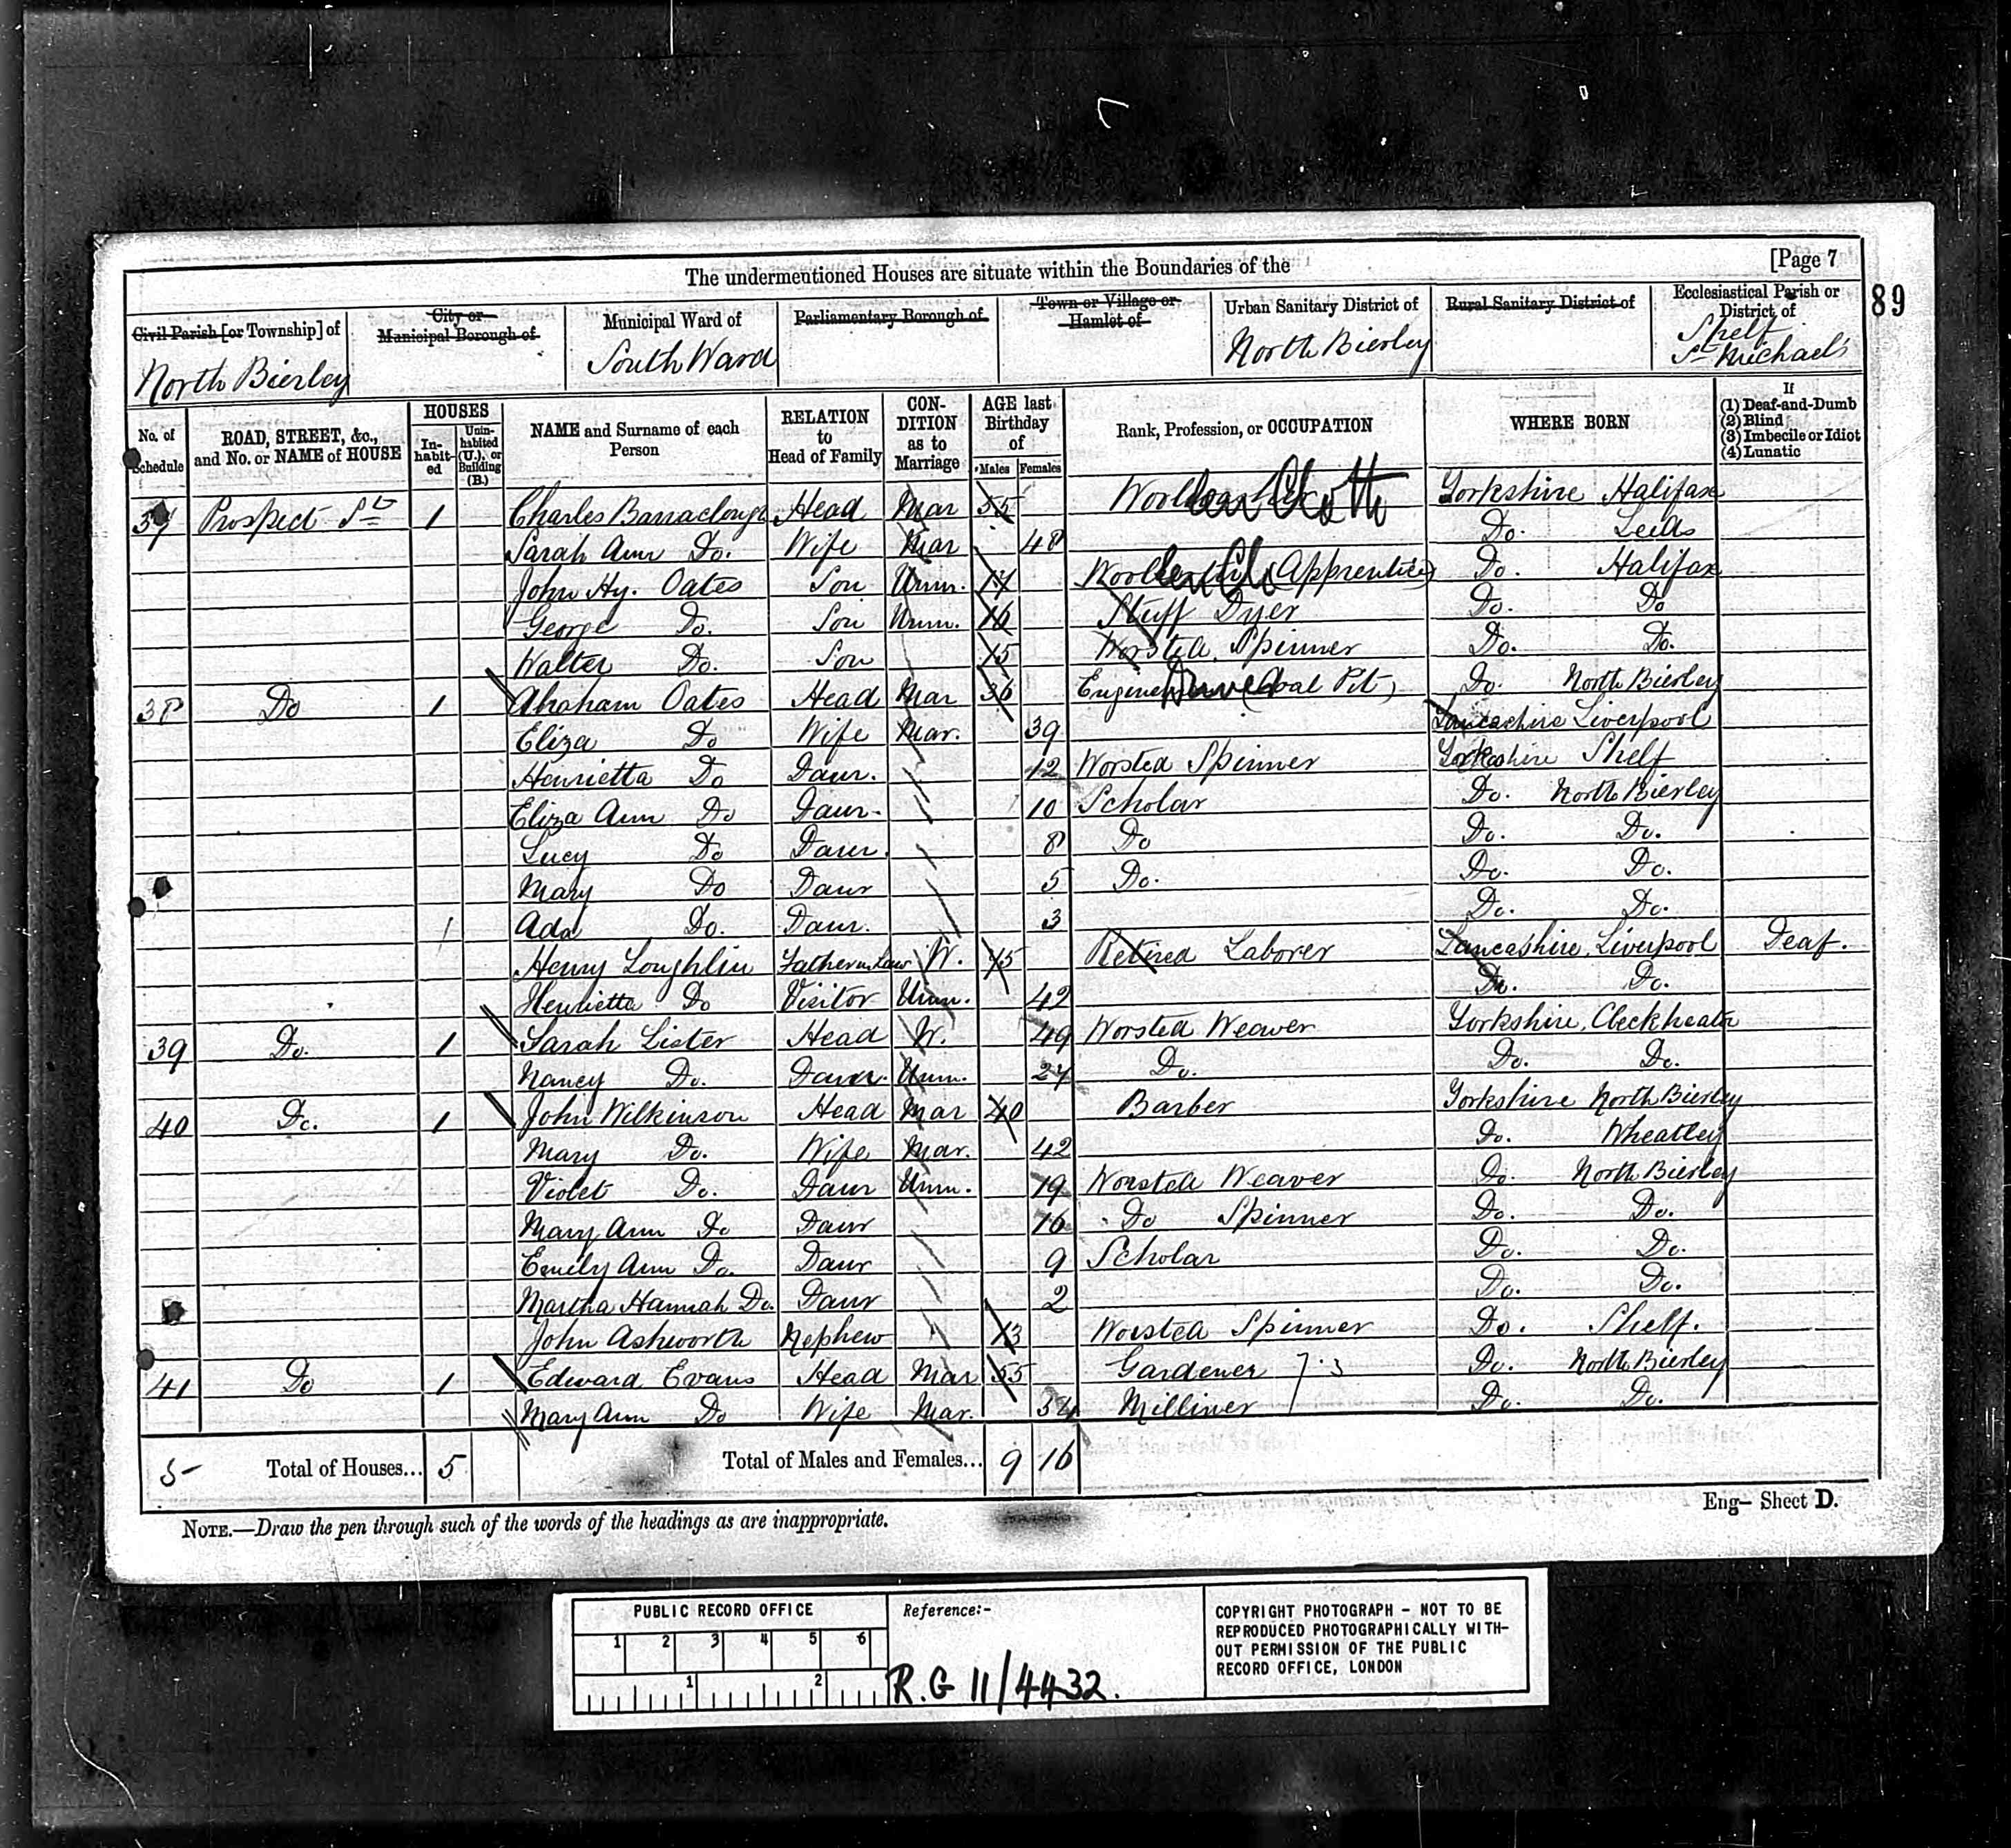 [Page 7
The undermentioned Houses are situate within the Boundaries of the
89
Civil Parish [or Township] of North Bierley
City or Municipal Borough of
Municipal Ward of South Ward
Parliamentary Borough of
Town or Village or Hamlet of
Urban Sanitary District of North Bierley
Rural Sanitary District of
Ecclesiastical Parish or District of Shelf St Michael's
No. of Schedule
ROAD, STREET, &c., and No. or NAME of HOUSE
HOUSES In-habit-ed Unin-habited (U.), or Building (B.)
NAME and Surname of each Person
RELATION to Head of Family
CON-DITION as to Marriage
AGE last Birthday of Males Females
Rank, Profession, or OCCUPATION
WHERE BORN
If (1) Deaf-and-Dumb (2) Blind (3) Imbecile or Idiot (4) Lunatic
37 Prospect St 1 Charles Barraclough Head Mar 55 Yorkshire Halifax
Sarah Ann Do. Wife Mar 48 Do. Leeds
John Hy. Oates Son Unm. Apprentice Do. Halifax
George Do. Son Unm. 16 Stuff Dyer Do. Do
Walter Do. Son 15 Worsted Spinner Do. Do.
38 Do 1 Abraham Oates Head Mar 36 (Coal Pit) Do. North Bierley
Eliza Do Wife Mar. 39 Lancashire Liverpool
Henrietta Do Daur. 12 Worsted Spinner Yorkshire Shelf
Eliza Ann Do Daur. 10 Scholar Do. North Bierley
Lucy Do Daur. 8 Do Do. Do.
Mary Do Daur 5 Do. Do. Do.
Ada Do. Daur. 3 Do. Do.
Henry Loughlin Father in Law W. 75 Retired Laborer Lancashire, Liverpool Deaf.
Henrietta Do Visitor Unm. 42 Do. Do.
39 Do. 1 Sarah Lister Head W. 49 Worsted Weaver Yorkshire, Cleckheaton
Nancy Do. Daur. Unm. 27 Do. Do. Do.
40 Do. 1 John Wilkinson Head Mar 40 Barber Yorkshire North Bierley
Mary Do. Wife Mar. 42 Do. Wheatley
Violet Do. Daur Unm. 19 Worsted Weaver Do. North Bierley
Mary Ann Do Daur 16 Do Spinner Do. Do.
Emily Ann Do. Daur 9 Scholar Do. Do.
Martha Hannah Do. Daur 2 Do. Do.
John Ashworth Nephew 13 Worsted Spinner Do. Shelf.
41 Do 1 Edward Evans Head Mar 55 Gardener Do. North Bierley
Mary Ann Do Wife Mar. 54 Milliner Do. Do.
5 Total of Houses... 5 Total of Males and Females... 9 16
NOTE.—Draw the pen through such of the words of the headings as are inappropriate.
Eng– Sheet D.
PUBLIC RECORD OFFICE
1 2 3 4 5 6
1 2
Reference:-
R.G 11/4432.
COPYRIGHT PHOTOGRAPH - NOT TO BE
REPRODUCED PHOTOGRAPHICALLY WITH-
OUT PERMISSION OF THE PUBLIC
RECORD OFFICE, LONDON